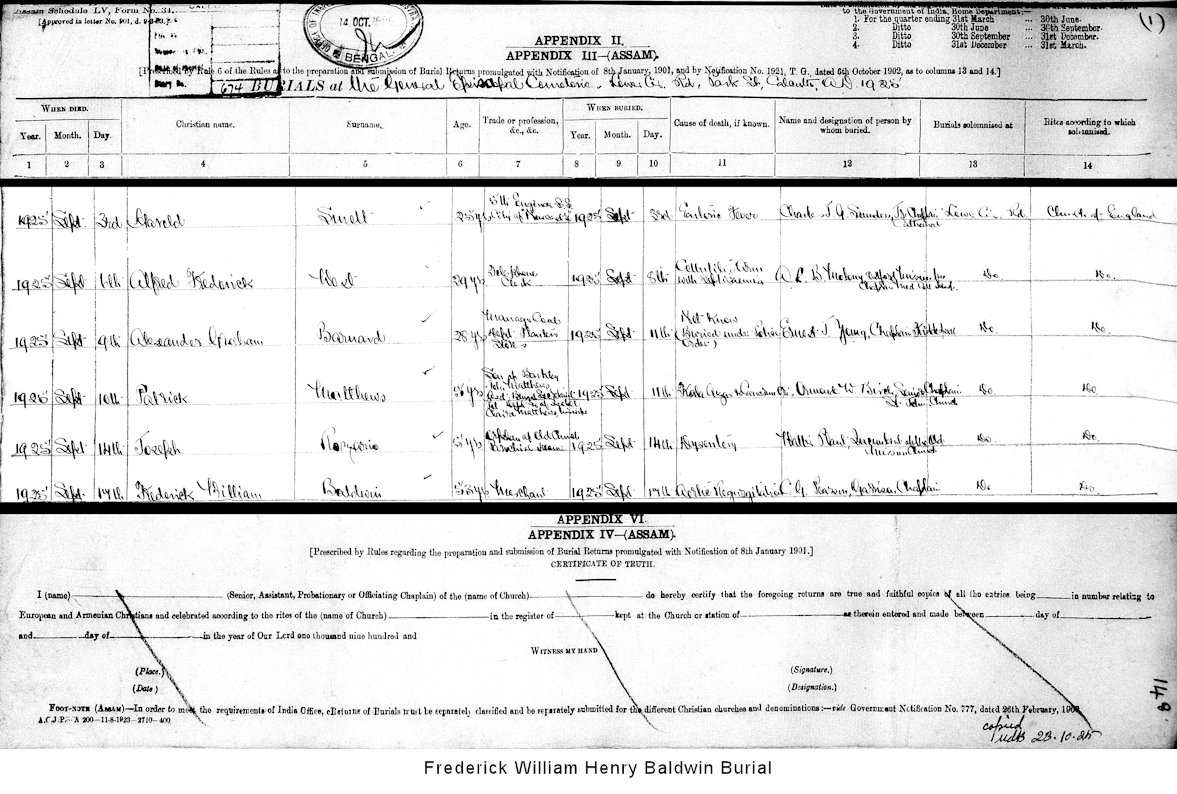 Assam Schedule LV, Form No. 34.
[Approved in letter No. 901, d.
14 OCT.
BENGAL
to the Government of India, Home Department:—
1. For the quarter ending 31st March ... 30th June.
2. Ditto 30th June ... 30th September.
3. Ditto 30th September ... 31st December.
4. Ditto 31st December ... 31st March.
(1)
APPENDIX II.
APPENDIX III—(ASSAM).
[Prescribed by Rule 6 of the Rules as to the preparation and submission of Burial Returns promulgated with Notification of 8th January, 1901, and by Notification No. 1921, T. G., dated 6th October 1902, as to columns 13 and 14.]
674 BURIALS at the General Episcopal Cemeterie, Lower Cir. Rd, Park St, Calcutta, A.D. 1925
WHEN DIED. WHEN BURIED.
Year. Month. Day. Christian name. Surname. Age. Trade or profession, &c., &c. Year. Month. Day. Cause of death, if known. Name and designation of person by whom buried. Burials solemnised at Rites according to which solemnised.
1 2 3 4 5 6 7 8 9 10 11 12 13 14
1925 Sept 3rd Harold 25 yrs 5th Engineer S.S. City of 1925 Sept 3rd Enteric Fever Charles T. G. Saunders, Jr Chaplain Cathedral Lower Cir. Rd Church of England
1925 Sept Alfred Frederick West 29 yrs Telephone Clerk 1925 Sept 8th with Septicaemia Oxford Mission Do Do.
1925 Sept 9th Alexander Graham Barnard 28 yrs Manager Coal Dept Planters Stores 1925 Sept 11th Not Known (Buried under Police Order) Ernest T Young, Chaplain Do Do.
1925 Sept 10th Patrick Matthews Son of Barkley John Matthews 1925 Sept 11th Kala Azar Ormond W. Birch, Senior Chaplain St John Church Do Do
1925 Sept 14th Joseph Rozario 5 yrs Orphan of Old Church 1925 Sept 14th Dysentery Incumbent of the Old Mission Church Do Do.
1925 Sept 17th Frederick William Baldwin 55 yrs Merchant 1925 Sept 17th Aortic Regurgitation C. G. Pearson, Garrison Chaplain Do Do.
APPENDIX VI.
APPENDIX IV—(ASSAM).
[Prescribed by Rules regarding the preparation and submission of Burial Returns promulgated with Notification of 8th January 1901.]
CERTIFICATE OF TRUTH.
I (name) (Senior, Assistant, Probationary or Officiating Chaplain) of the (name of Church) do hereby certify that the foregoing returns are true and faithful copies of all the entries being in number relating to
European and Armenian Christians and celebrated according to the rites of the (name of Church) in the register of kept at the Church or station of as therein entered and made between day of
and day of in the year of Our Lord one thousand nine hundred and
WITNESS MY HAND
(Place.) (Signature.)
(Date) (Designation.)
FOOT-NOTE (ASSAM)—In order to meet the requirements of India Office, eReturns of Burials must be separately classified and be separately submitted for the different Christian churches and denominations:—vide Government Notification No. 777, dated 26th February, 190
A.G.J.P.—A 200—11-8-1923—2710-400.
148
copied
23.10.25
Frederick William Henry Baldwin Burial